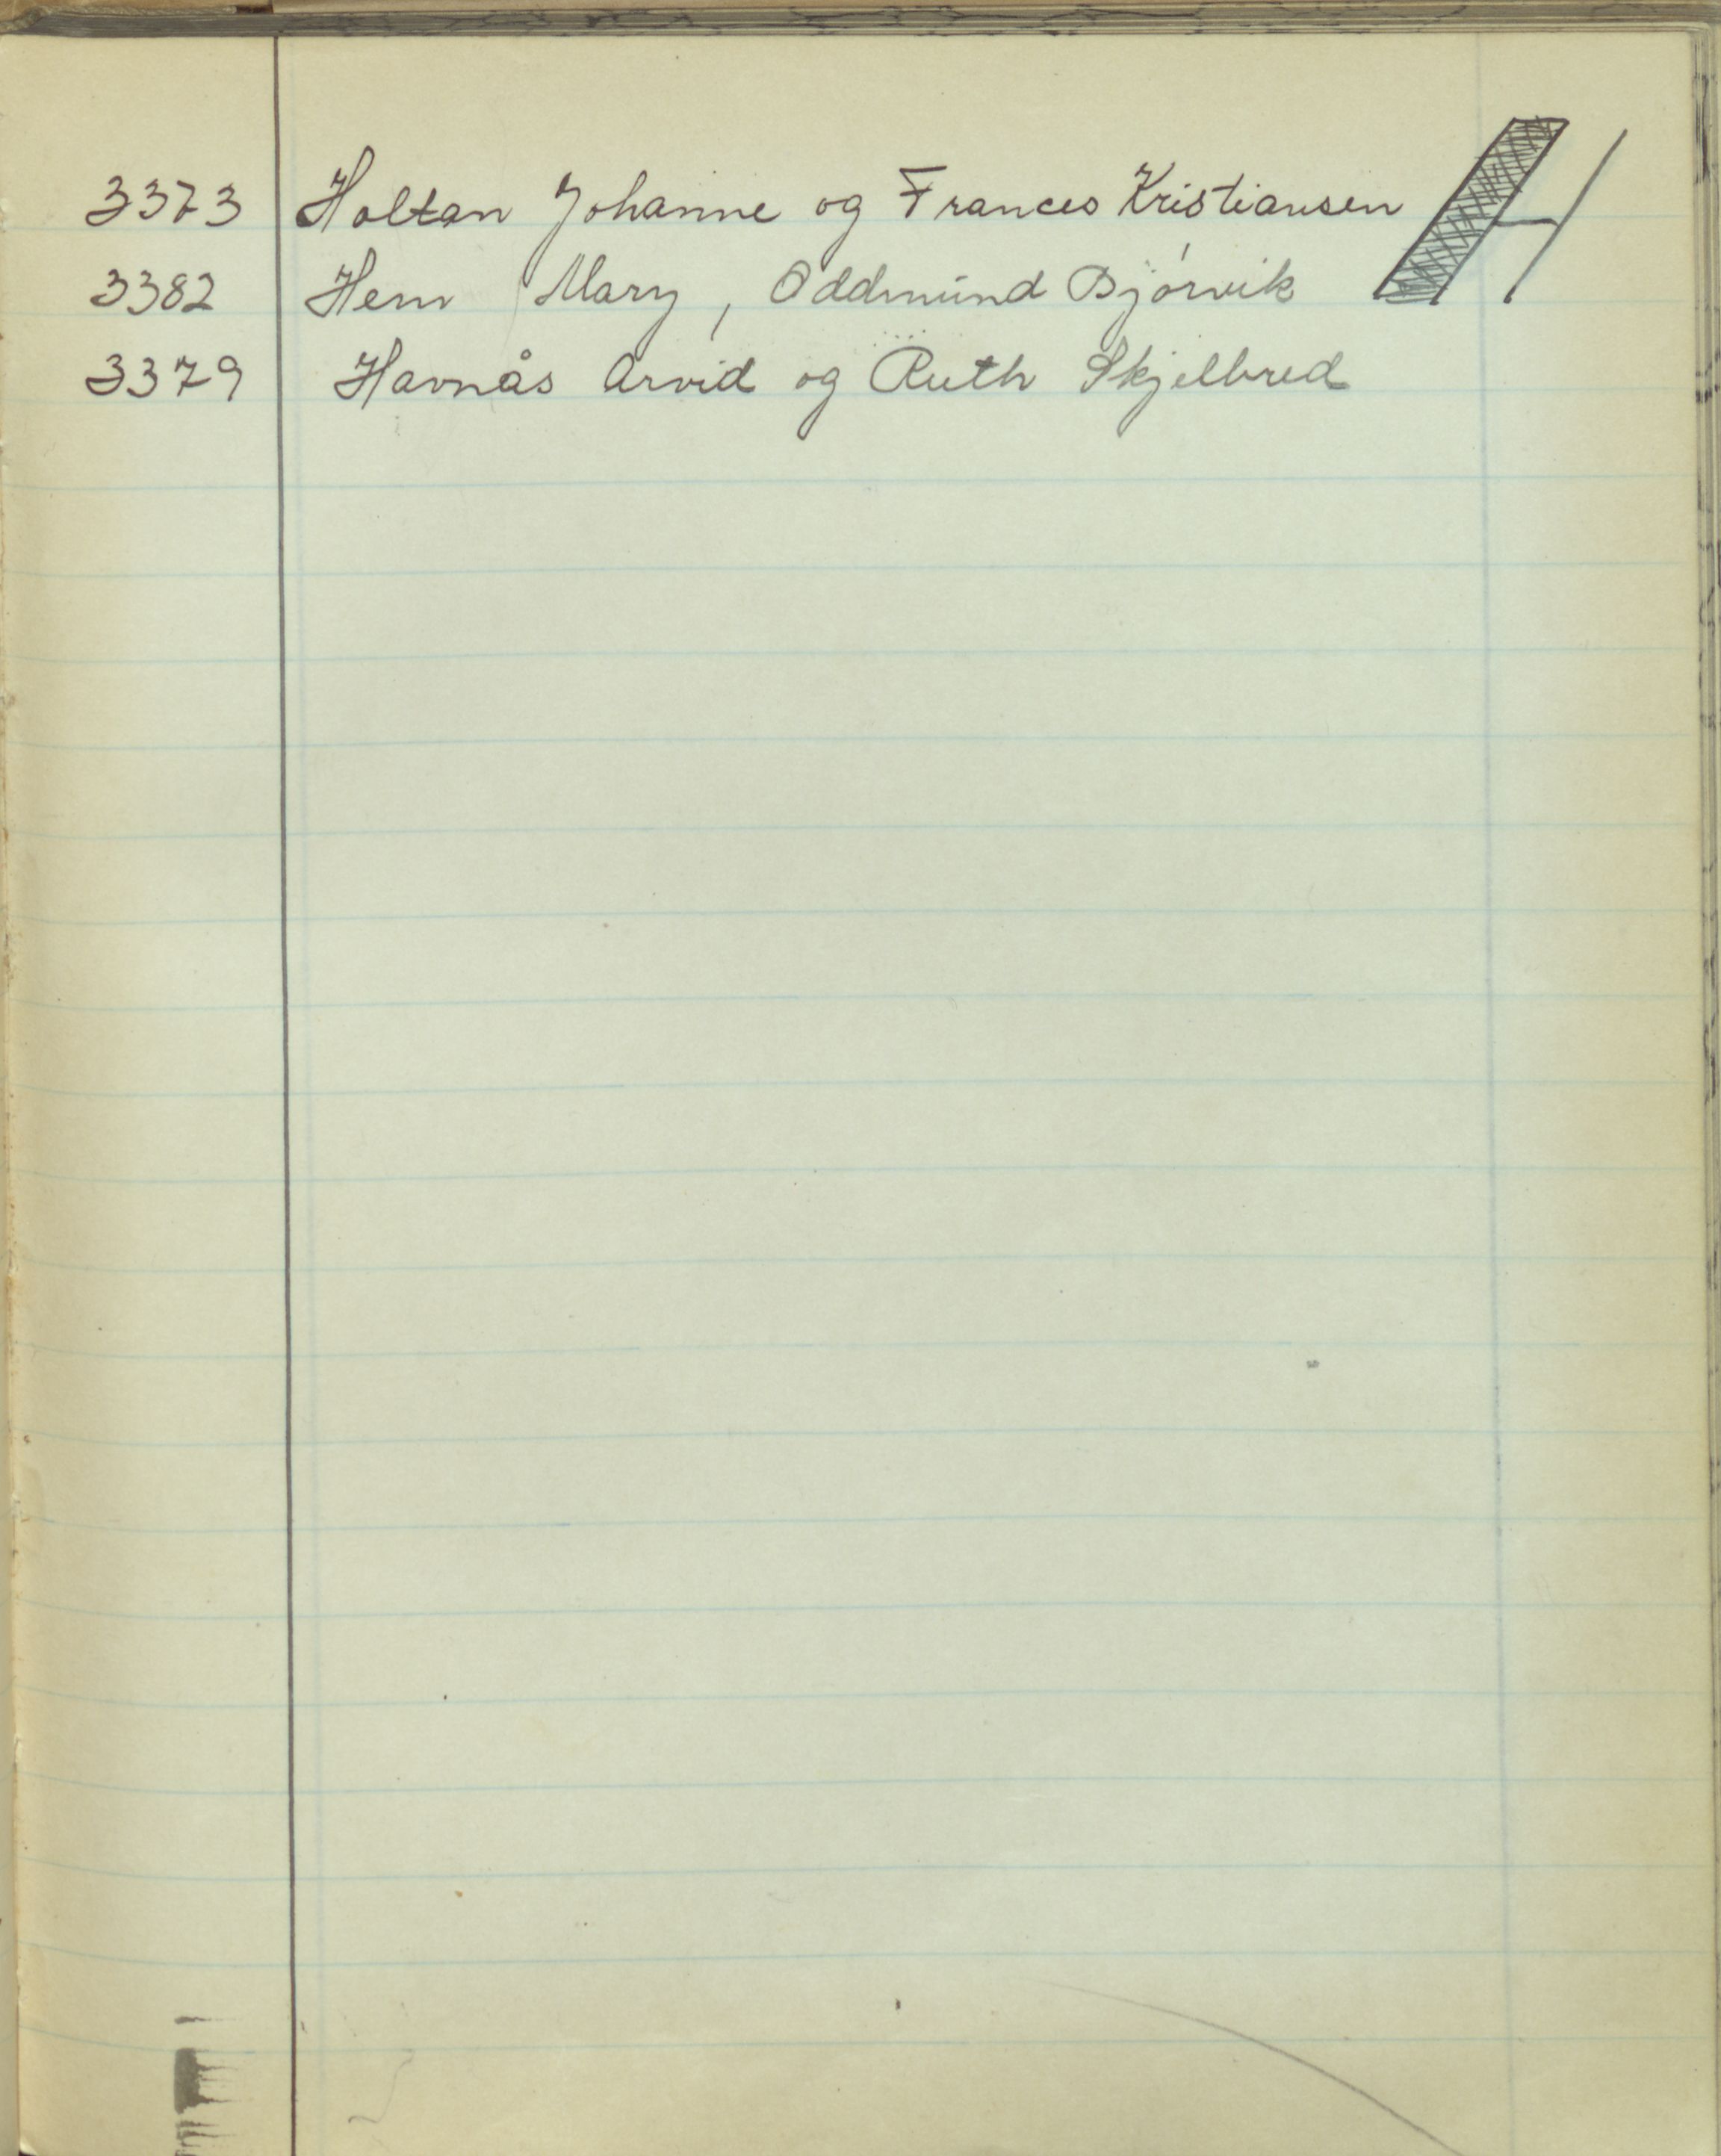 H
3373 Holtan Johanne og Frances Kristiansen
3382 Hem Mary, Oddmund Bjórvik
3379 Havnås Arvid og Ruth Skjelbred